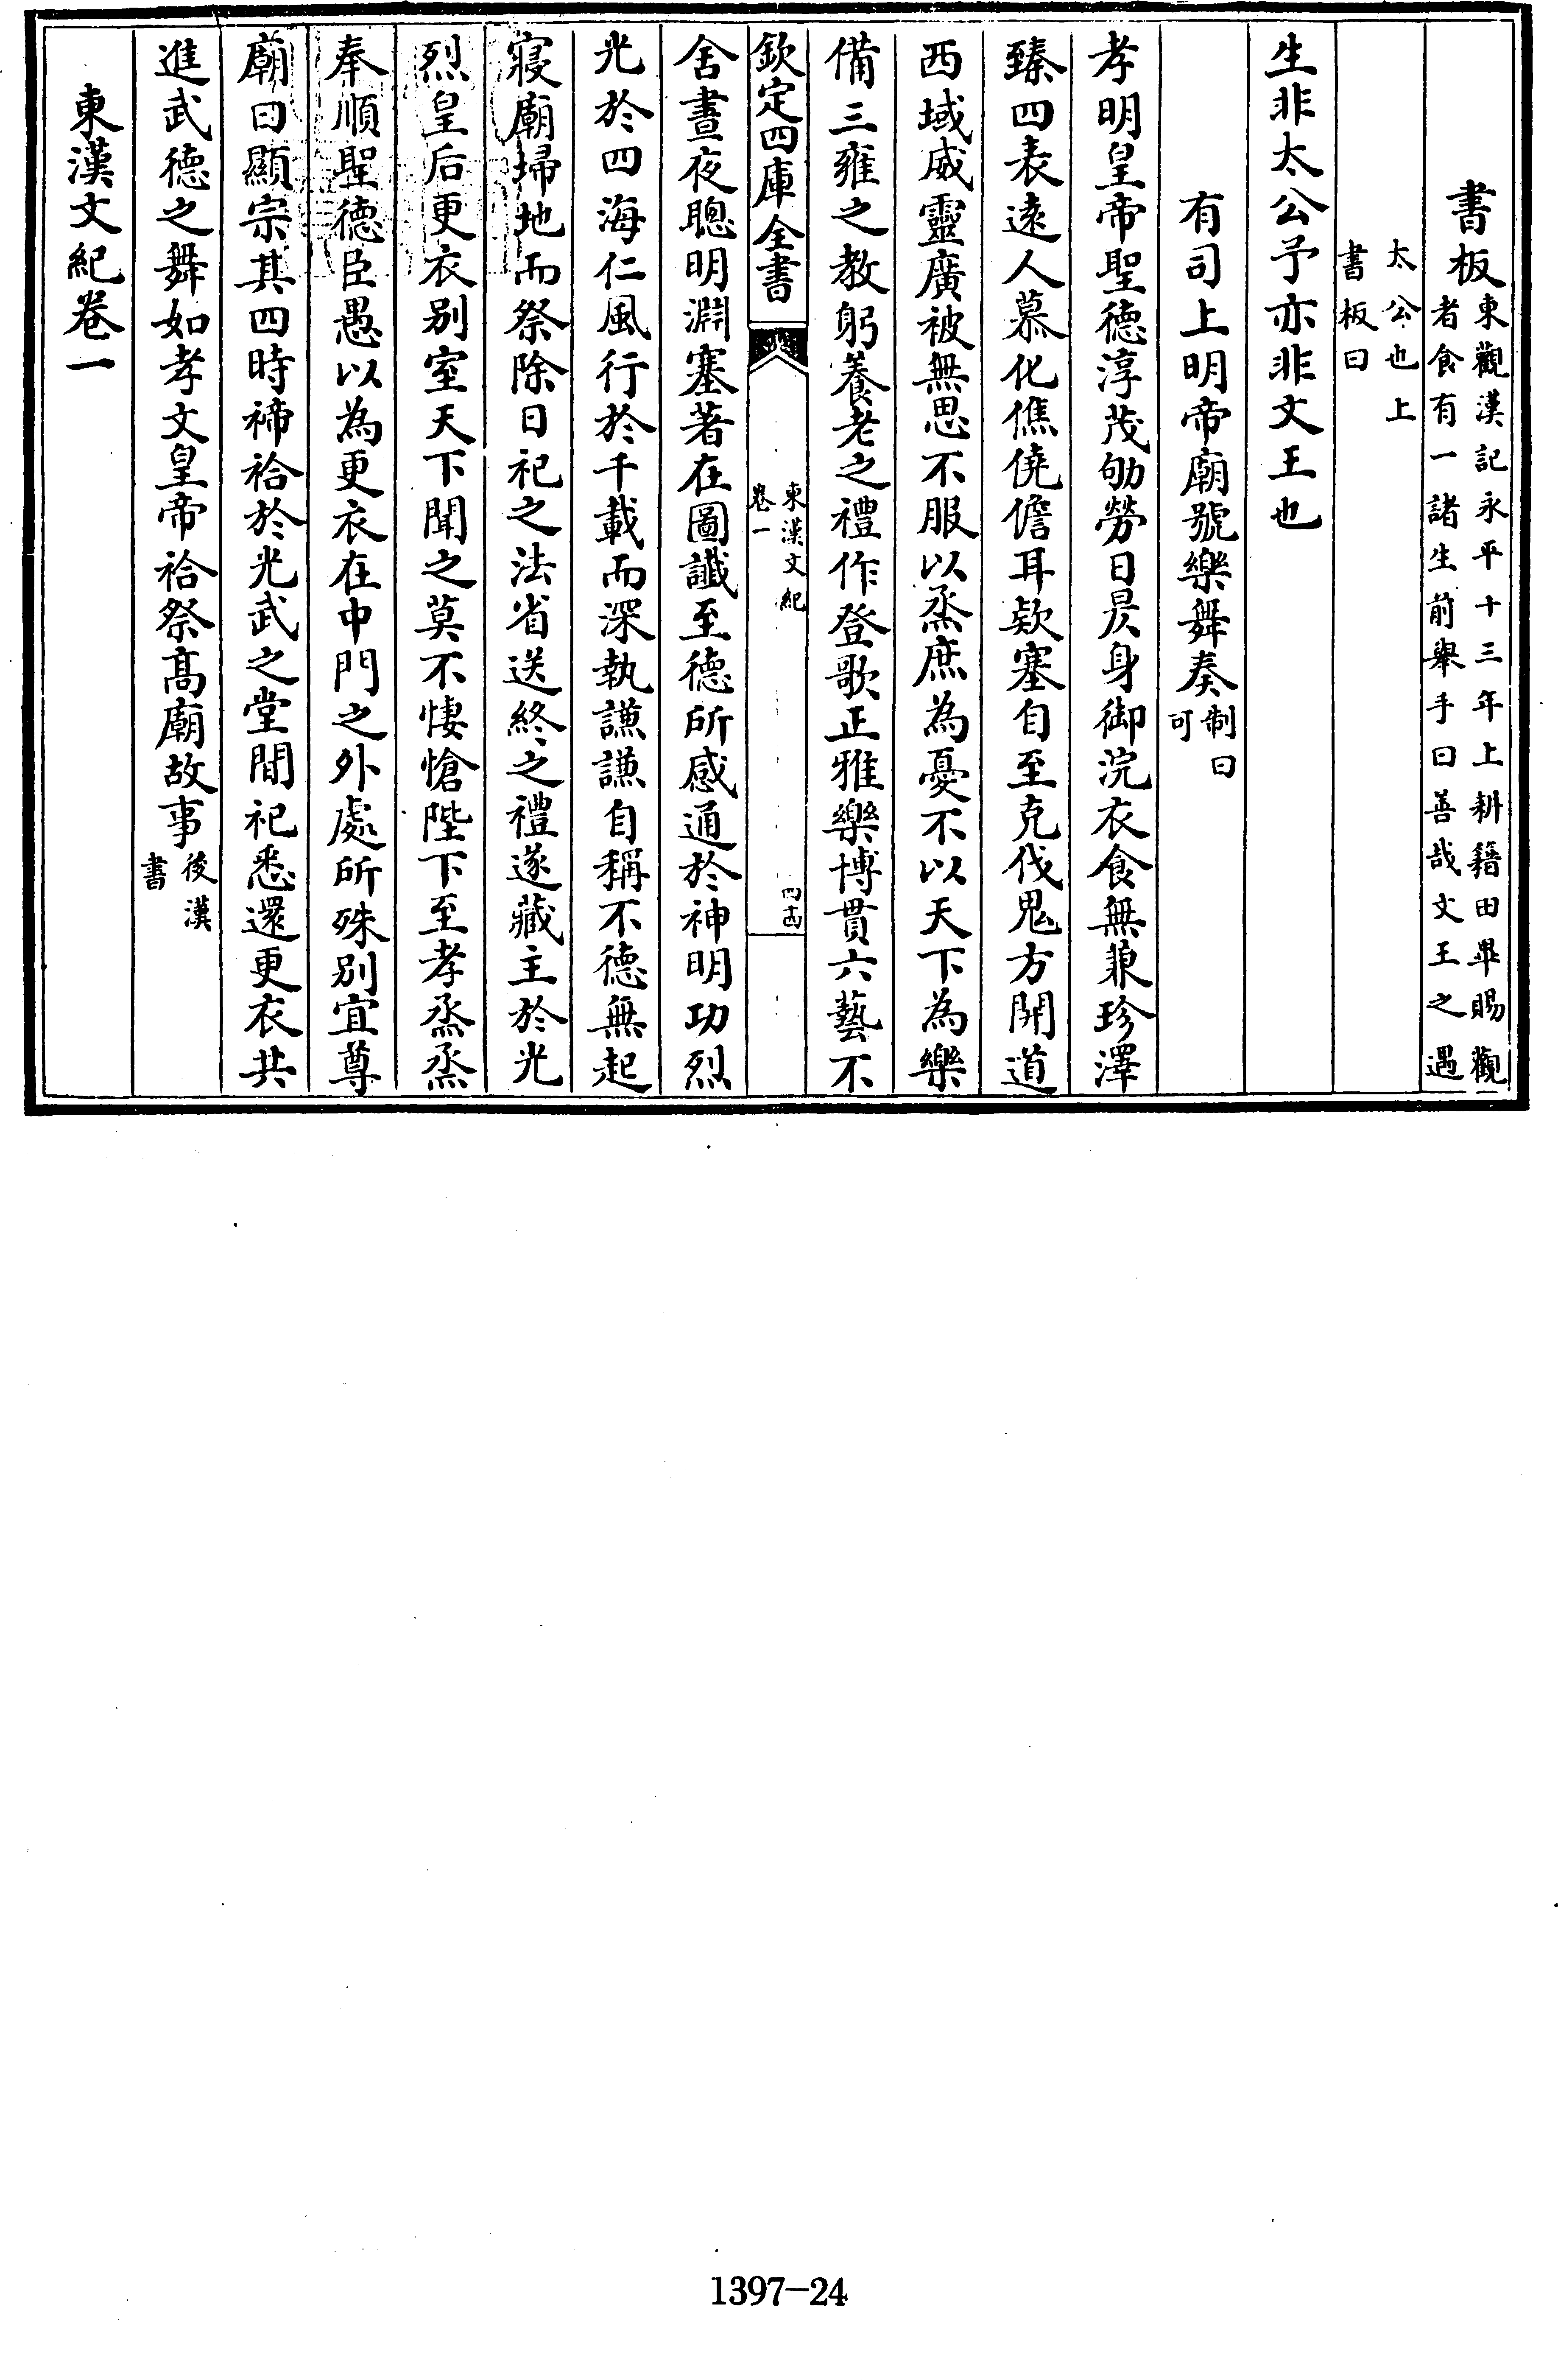 書板東觀漢記永平十三年上耕籍田畢賜觀
者食有一諸生前舉手曰善哉文王之遇
太公也上
書板曰
生非太公予亦非文王也
有司上明帝廟號樂舞奏制曰
可
孝明皇帝聖德淳茂劬勞日昃身御浣衣食無兼珍澤
臻四表遠人慕化僬僥儋耳款塞自至克伐鬼方開道
西域威靈廣被無思不服以烝庶為憂不以天下為樂
備三雍之教躬養老之禮作登歌正雅樂博貫六藝不
欽定四庫全書
東漢文紀
卷一
四十四
舍晝夜聰明淵塞著在圖讖至德所感通於神明功烈
光於四海仁風行於千載而深執謙謙自稱不德無起
寢廟埽地而祭除日祀之法省送終之禮遂藏主於光
烈皇后更衣別室天下聞之莫不悽愴陛下至孝烝烝
奉順聖德臣愚以為更衣在中門之外處所殊別宜尊
廟曰顯宗其四時禘祫於光武之堂閒祀悉還更衣共
進武德之舞如孝文皇帝祫祭髙廟故事後漢
書
東漢文紀卷一
1397-24